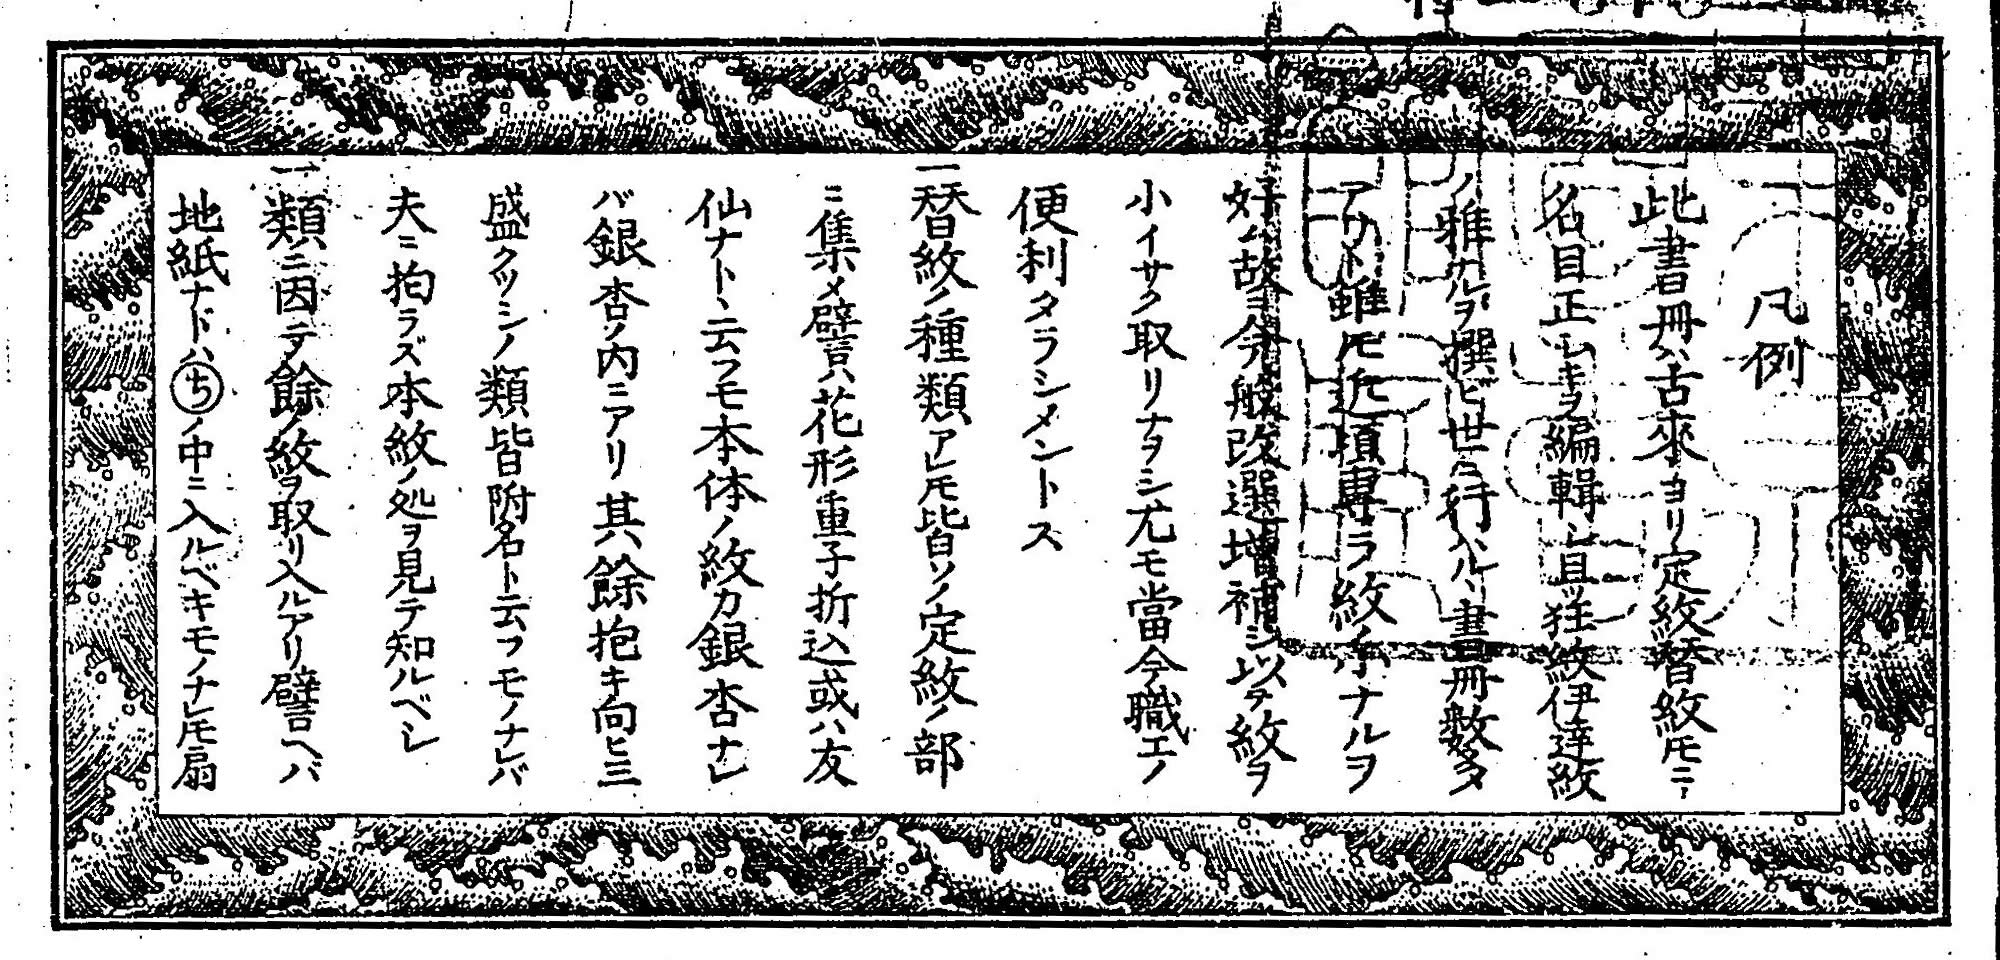 一 凡例
此書冊ハ古來ヨリ定紋替紋𪜈ニ
名目正シキヲ編輯シ且ツ狂紋伊達紋
ノ雅ナルヲ撰ビ世ニ行ハルヽ書冊数多
アリト雖𪜈近頃専ラ紋ノ小ナルヲ
好ム故ヨ今般改選増補シ以テ紋ヲ
小イサク取リナヲシ尤モ當今職工ノ
便利タラシメントス
一替紋ノ種類アレ𪜈皆ソノ定紋ノ部
ニ集メ譬ハ花形重子折込或ハ友
仙ナトヽ云フモ本体ノ紋カ銀杏ナレ
バ銀杏ノ内ニアリ其餘抱キ向ヒ三
盛クヅシノ類皆附名ト云フモノナレバ
夫ニ拘ラズ本紋ノ処ヲ見テ知ルベシ
一類ニ因テ餘ノ紋ヲ取リ入ルアリ譬ヘバ
地紙ナドハちノ中ニ入ルベキモノナレ𪜈扇